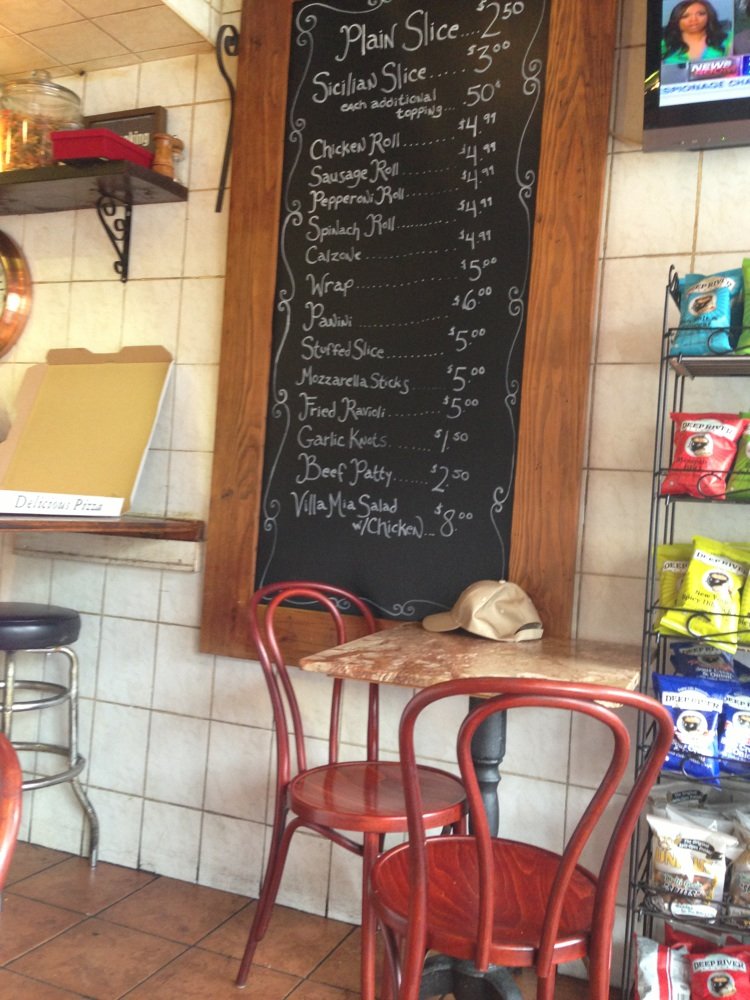 Plain Slice.... $2.50
Sicilian Slice...... $3.00
each additional
topping.... .50¢
Chicken Roll........ $4.99
Sausage Roll........ $4.99
Pepperoni Roll........ $4.99
Spinach Roll......... $4.99
Calzone............... $4.99
Wrap................. $5.00
Panini............... $6.00
Stuffed Slice........ $5.00
Mozzarella Sticks..... $5.00
Fried Ravioli........ $5.00
Garlic Knots....... $1.50
Beef Patty..... $2.50
Villa Mia Salad
w/Chicken... $8.00
Delicious Pizza
NEWS
DEEP RIVER
DEEP RIVER
DEEP RIVER
New York
Spicy Dill
DEEP RIVER
DEEP RIVER